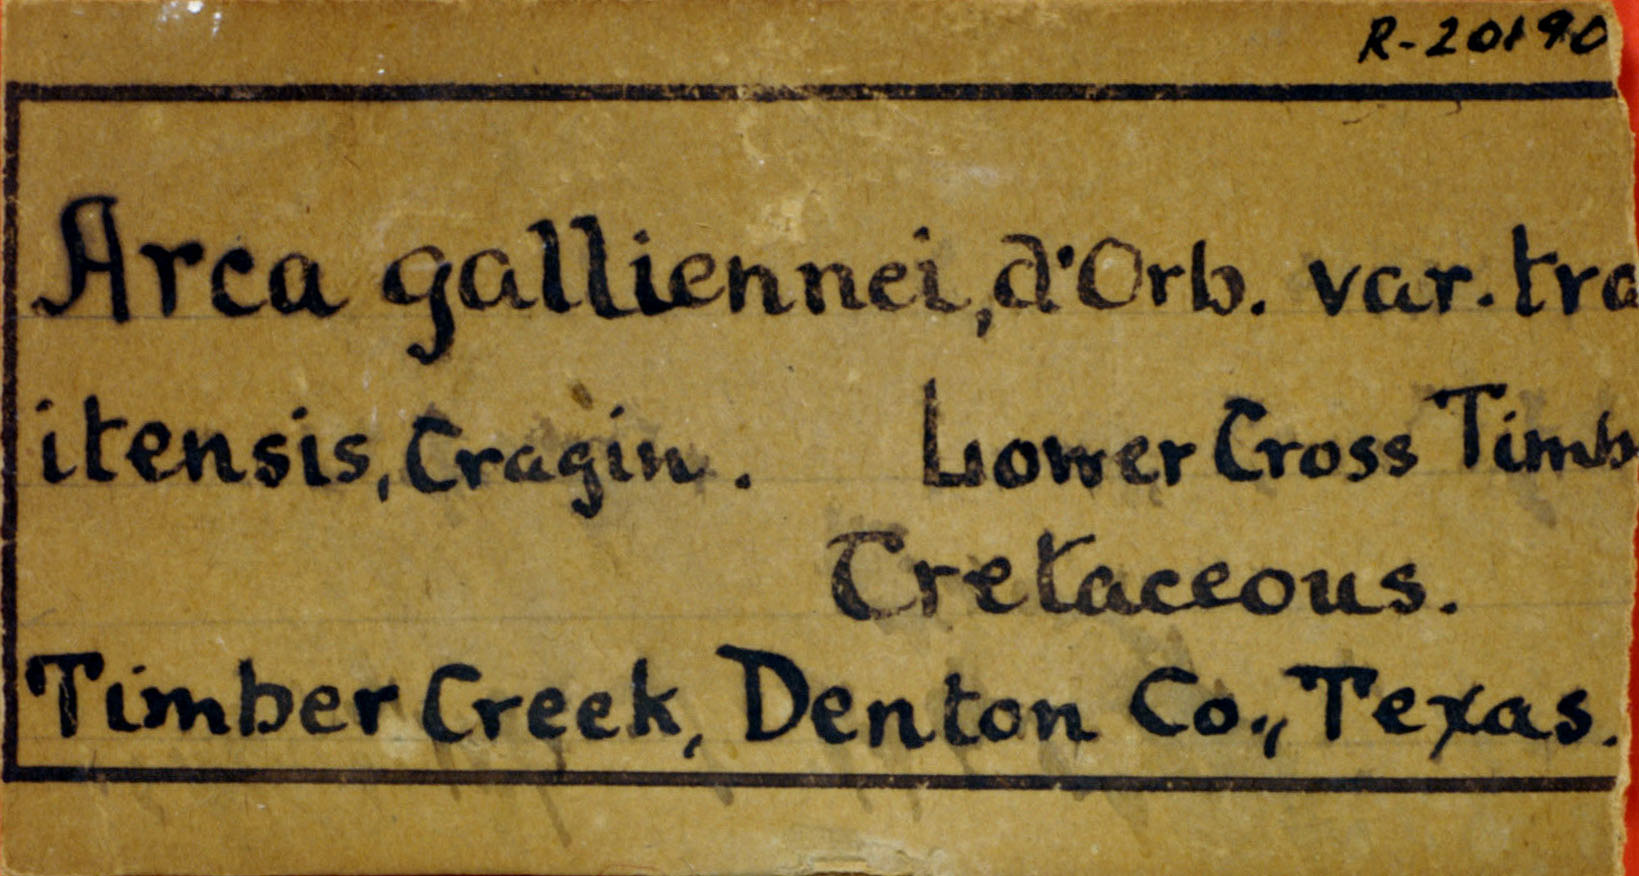 R-20190
Arca galliennei, d'Orb. var. tra
itensis, Cragin. Lower Cross Timb
Cretaceous.
Timber Creek, Denton Co., Texas.